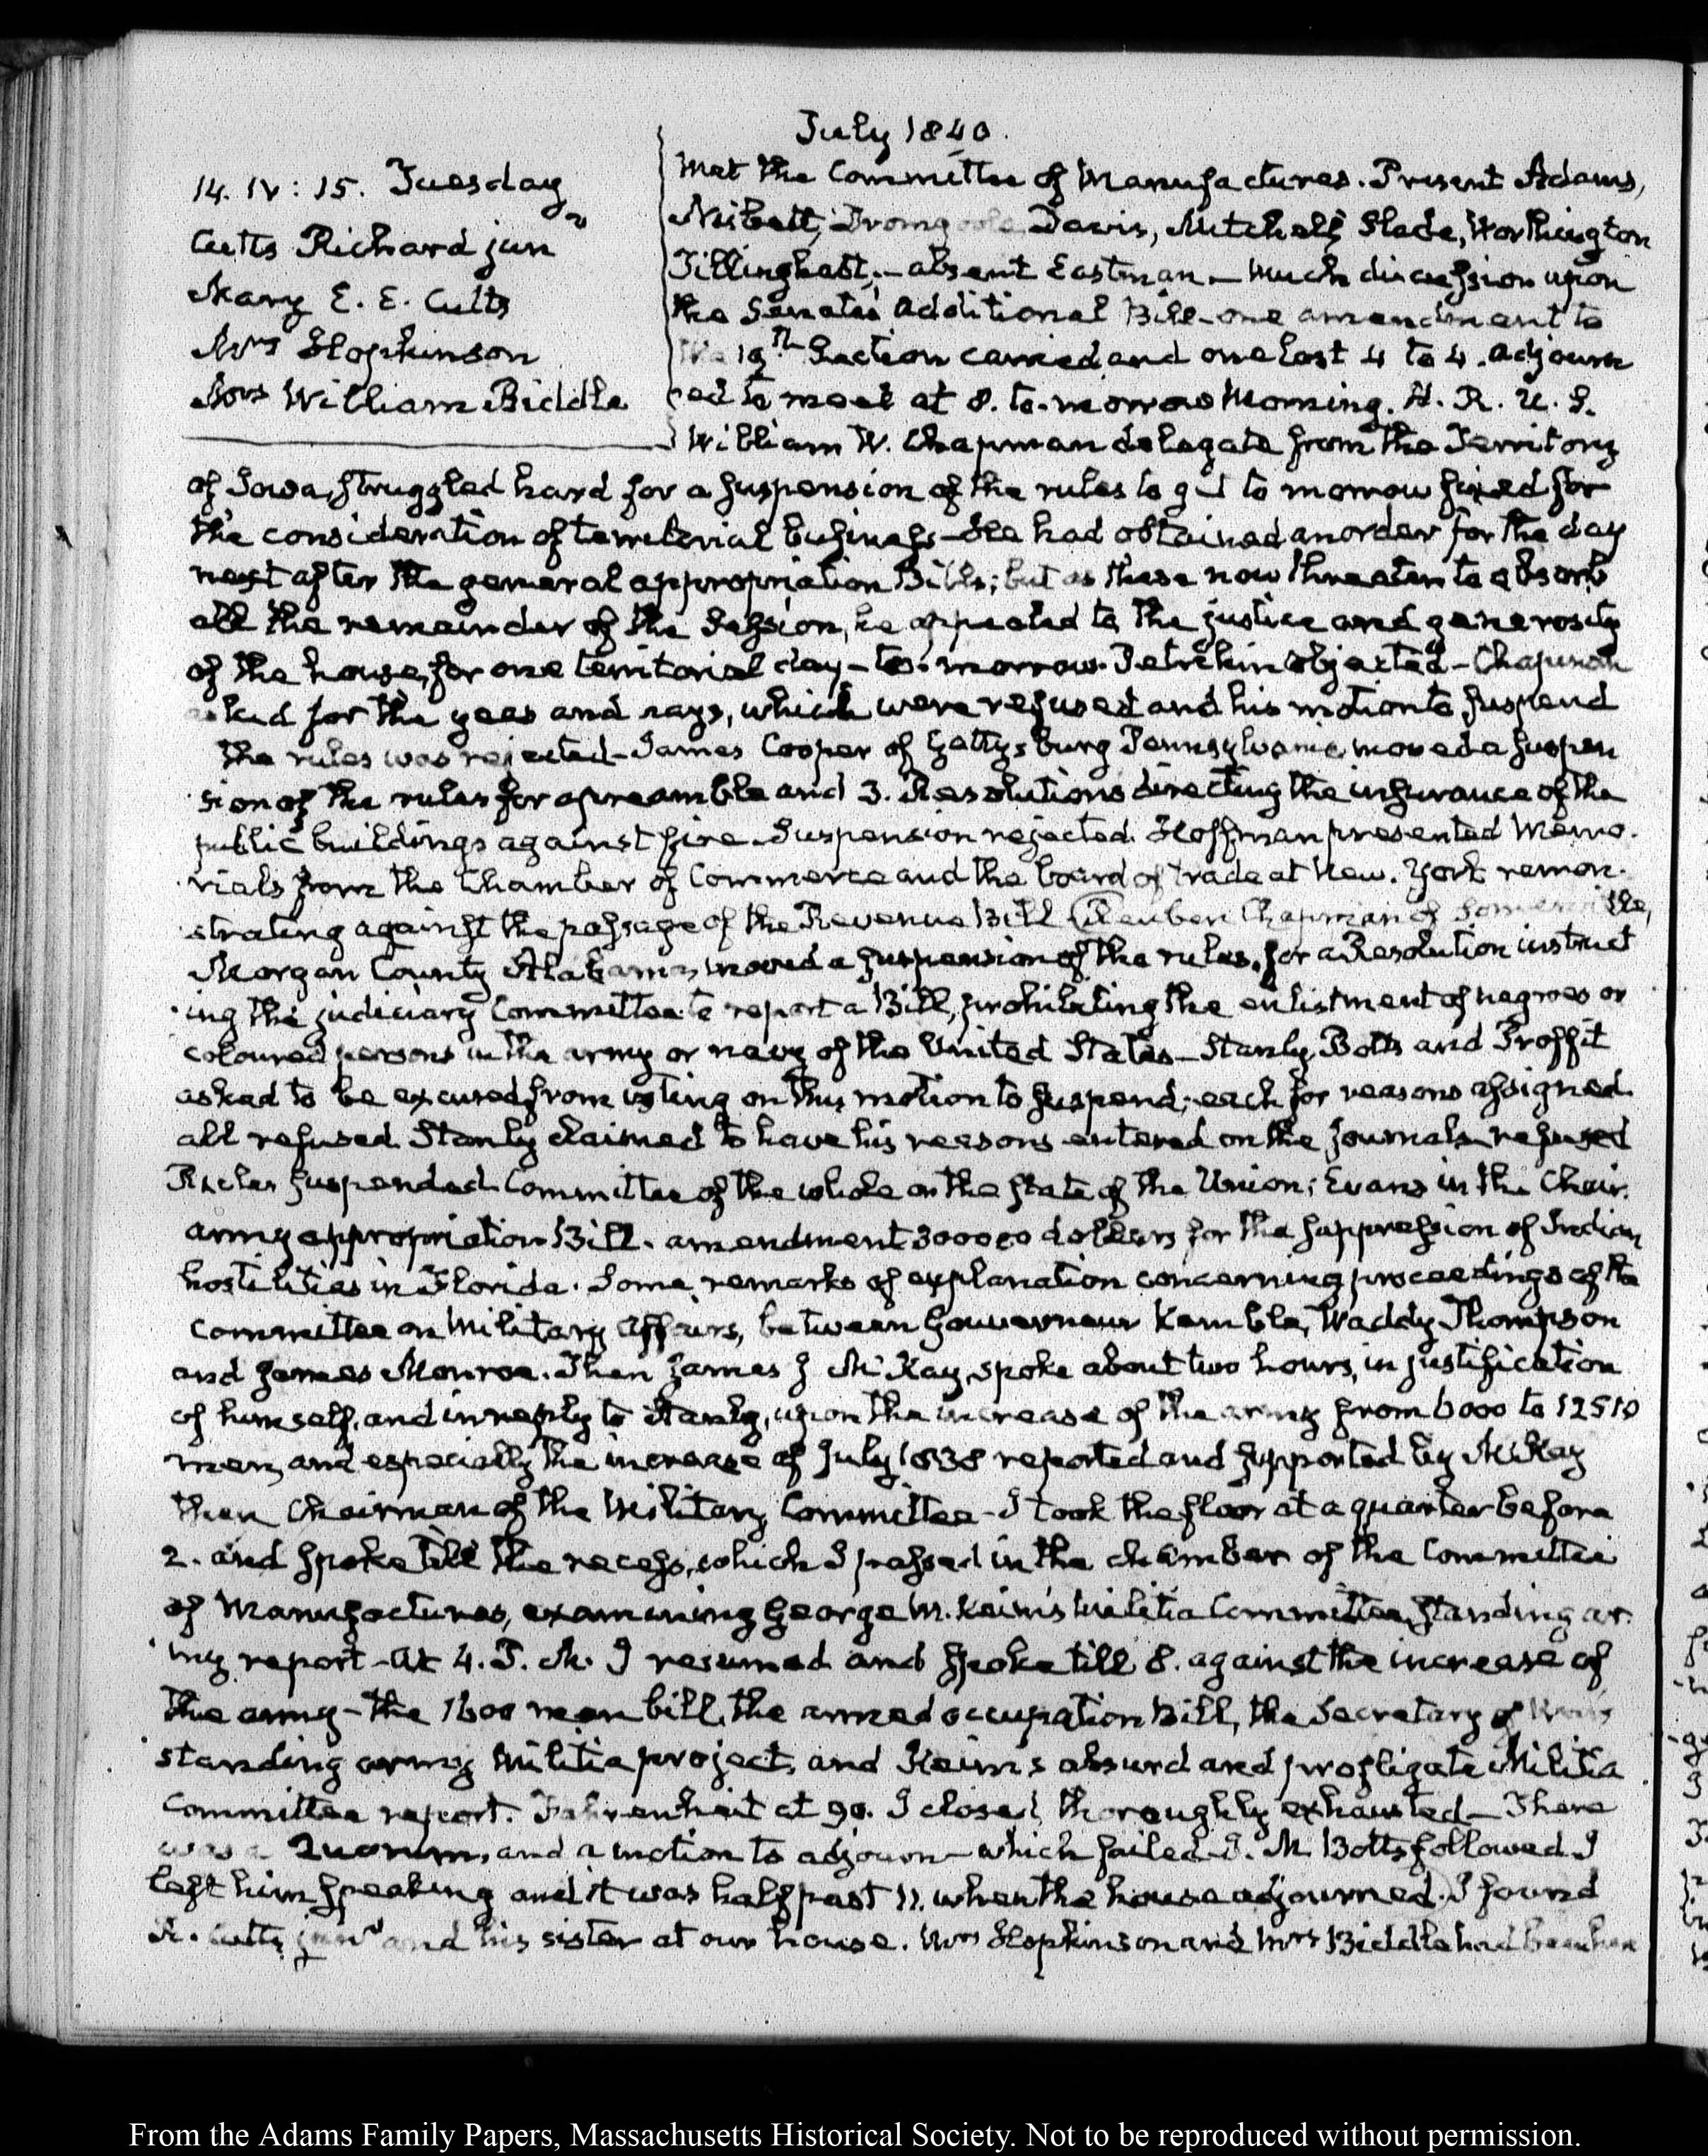 July 1840.
14. IV: 15. Tuesday
Cutts Richard junr
Mary E. E. Cutts
Mrs Hopkinson
Mrs William Biddle
Met the Committee of Manufactures. Present Adams,
Nisbett, Dromgoole, Davis, Mitchell, Slade, Worthington
Tillinghast,— absent Eastman — Much discussion upon
the Senate's additional Bill — one amendment to
the 19th Section carried and one lost 4 to 4. adjourn
ed to meet at 8. to-morrow Morning. H. R. U. S.
William W. Chapman delegate from the Territory
of Iowa, struggled hard for a suspension of the rules to get to morrow fixed for
the consideration of territorial business — He had obtained an order for the day
next after the general appropriation Bills; but as these now threaten to absorb
all the remainder of the Session, he appealed to the justice and generosity
of the house, for one territorial day — to-morrow. Petrikin objected — Chapman
asked for the yeas and nays, which were refused and his motion to suspend
the rules was rejected — James Cooper of Gettysburg Pennsylvania moved a suspen
sion of the rules for a preamble and 3. Resolutions directing the insurance of the
public buildings against fire. Suspension rejected. Hoffman presented Memo-
rials from the Chamber of Commerce and the board of trade at New-York remon-
strating against the passage of the Revenue Bill (Reuben Chapman of Somerville,
Morgan County Alabama, moved a suspension of the rules, for a Resolution instruct
ing the judiciary Committee to report a Bill, prohibiting the enlistment of negroes or
coloured persons in the army or navy of the United States — Stanly, Botts and Proffit
asked to be excused from voting on this motion to suspend; each for reasons assigned
all refused Stanly claimed to have his reasons entered on the journals refused
Rules suspended. Committee of the whole on the State of the Union; Evans in the Chair.
army appropriation Bill. amendment 300000 dollars for the suppression of Indian
hostilities in Florida. Some remarks of explanation concerning proceedings of the
Committee on Military affairs, between Gouverneur Kemble, Waddy Thompson
and James Monroe. Then James J McKay, spoke about two hours, in justification
of himself, and in reply to Stanly, upon the increase of the army from 6000 to 12510
men, and especially the increase of July 1838 reported and supported by McKay
then Chairman of the Military Committee — I took the floor at a quarter before
2. and spoke till the recess, which I passed in the chamber of the Committee
of Manufactures, examining George M. Keim's Militia Committee, Standing ar-
my report — At 4. P. M. I resumed and spoke till 8. against the increase of
the army — the 1600 men bill, the armed occupation Bill, the Secretary of War's
standing army Militia project, and Keim's absurd and profligate Militia
Committee report. Fahrenheit at 90. I closed, thoroughly exhausted — There
was a Quorum, and a motion to adjourn — which failed — J. M. Botts followed. I
left him speaking and it was half past 11. when the house adjourned. I found
R. Cutts junr and his sister at our house. Mrs Hopkinson and Mrs Biddle had been here